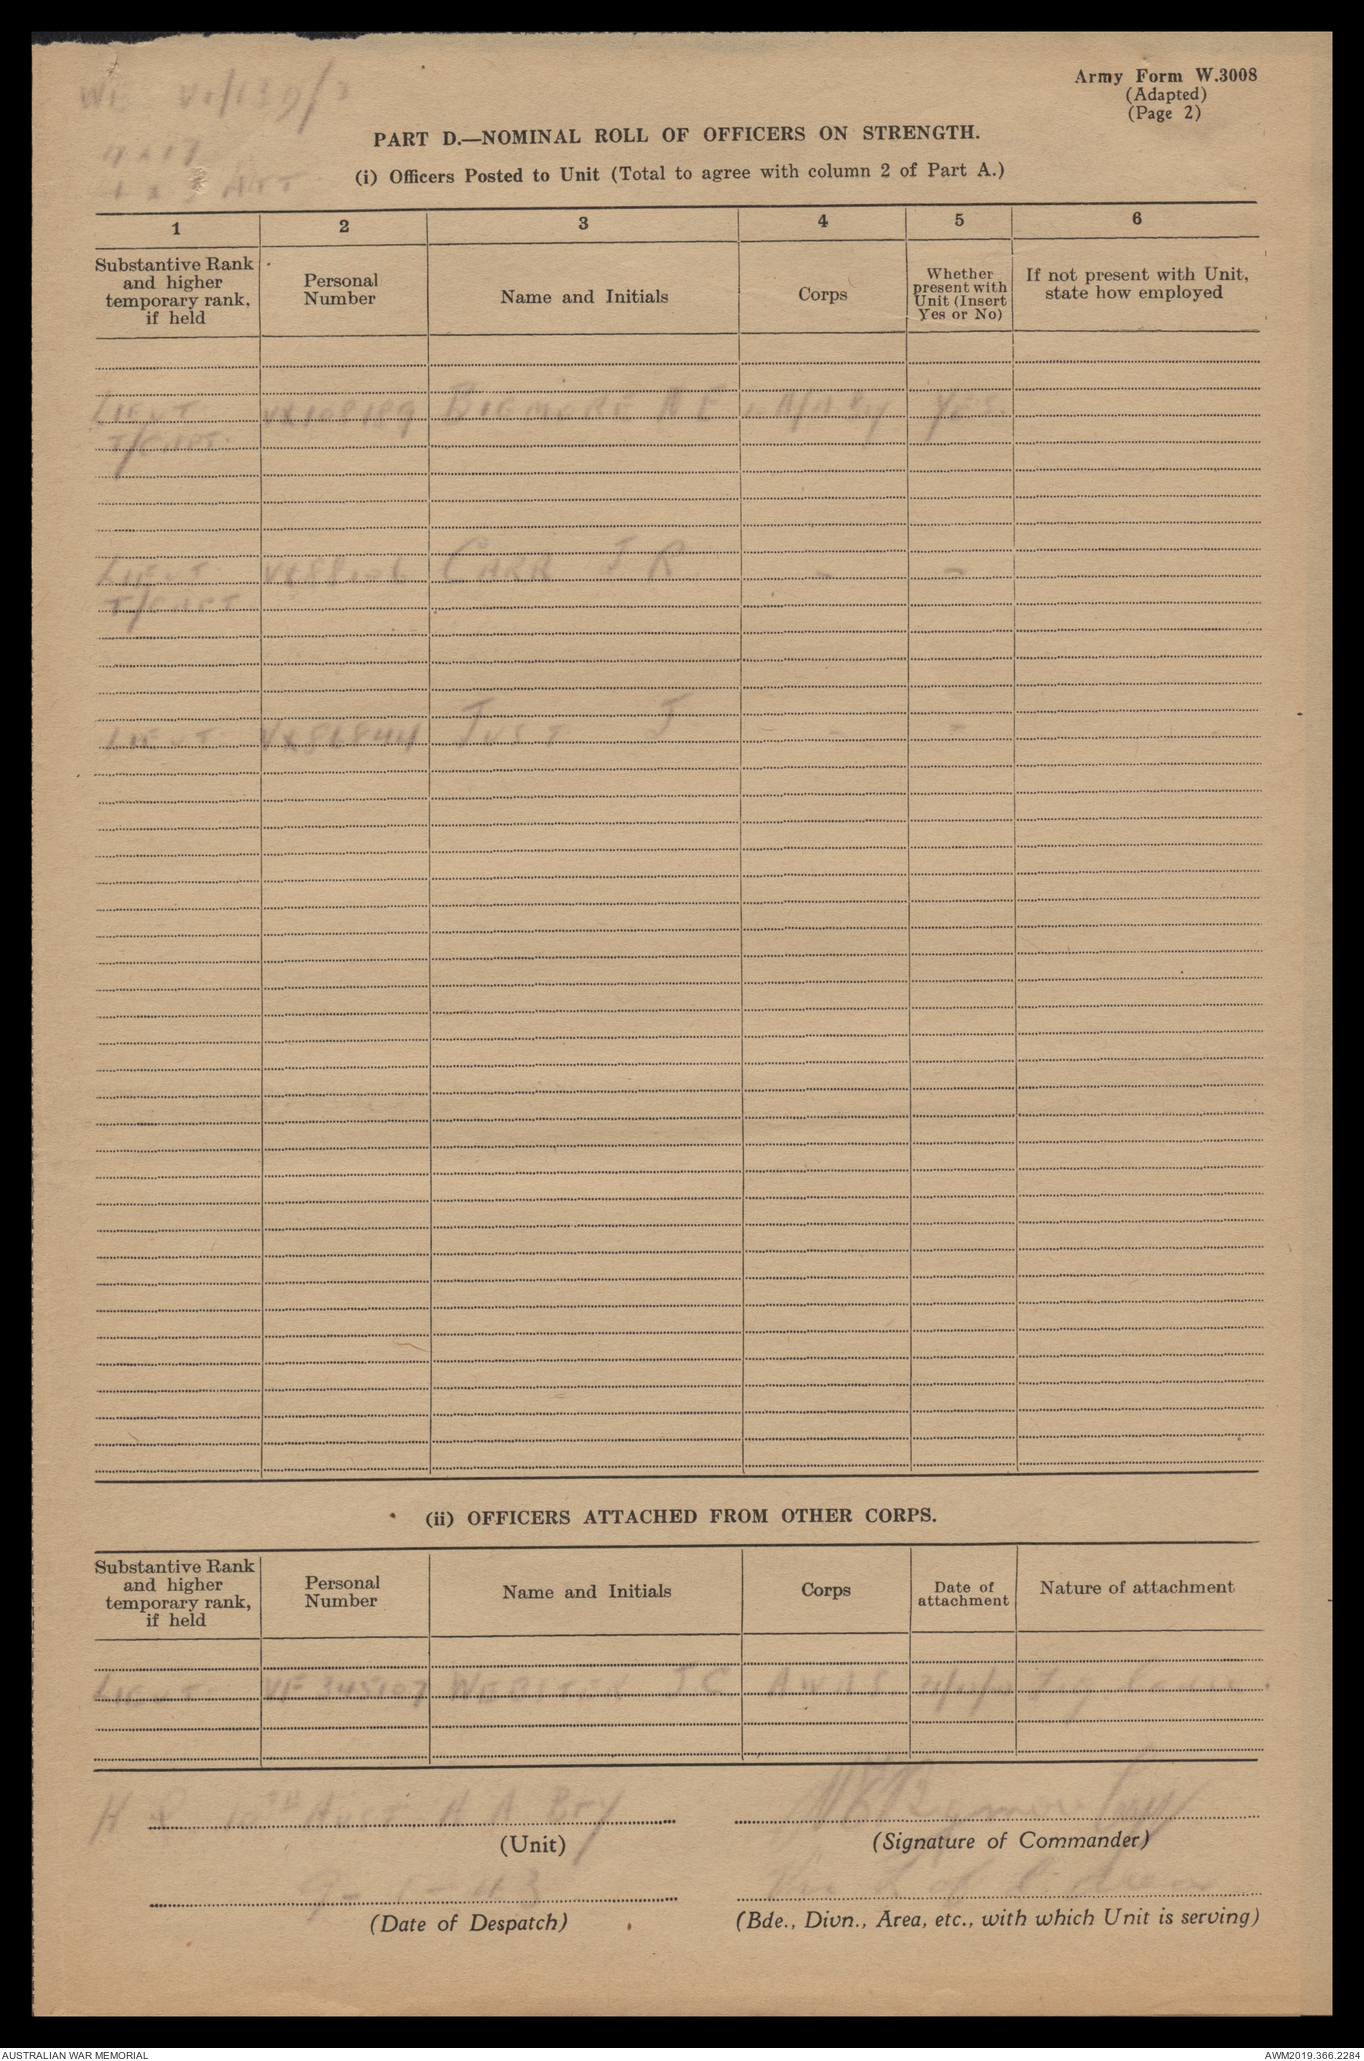 WE VI/139/
Army Form W.3008
(Adapted)
(Page 2)
PART D.—NOMINAL ROLL OF OFFICERS ON STRENGTH.
(i) Officers Posted to Unit (Total to agree with column 2 of Part A.)
1 2 3 4 5 6
Substantive Rank and higher temporary rank, if held
Personal Number
Name and Initials
Corps
Whether present with Unit (Insert Yes or No)
If not present with Unit, state how employed
LIEUT VX108189 BIGMORE A E Yes
T/CAPT.
LIEUT CARR J R - -
T/CAPT
LIEUT VX86844 JUST J - -
(ii) OFFICERS ATTACHED FROM OTHER CORPS.
Substantive Rank and higher temporary rank, if held
Personal Number
Name and Initials
Corps
Date of attachment
Nature of attachment
LIEUT WEBSTER J C AWAS
H Q 10TH AUST H A Bty
(Unit)
(Signature of Commander)
9-1-43
Vic L of C Area
(Date of Despatch)
(Bde., Divn., Area, etc., with which Unit is serving)
AUSTRALIAN WAR MEMORIAL
AWM2019.366.2284